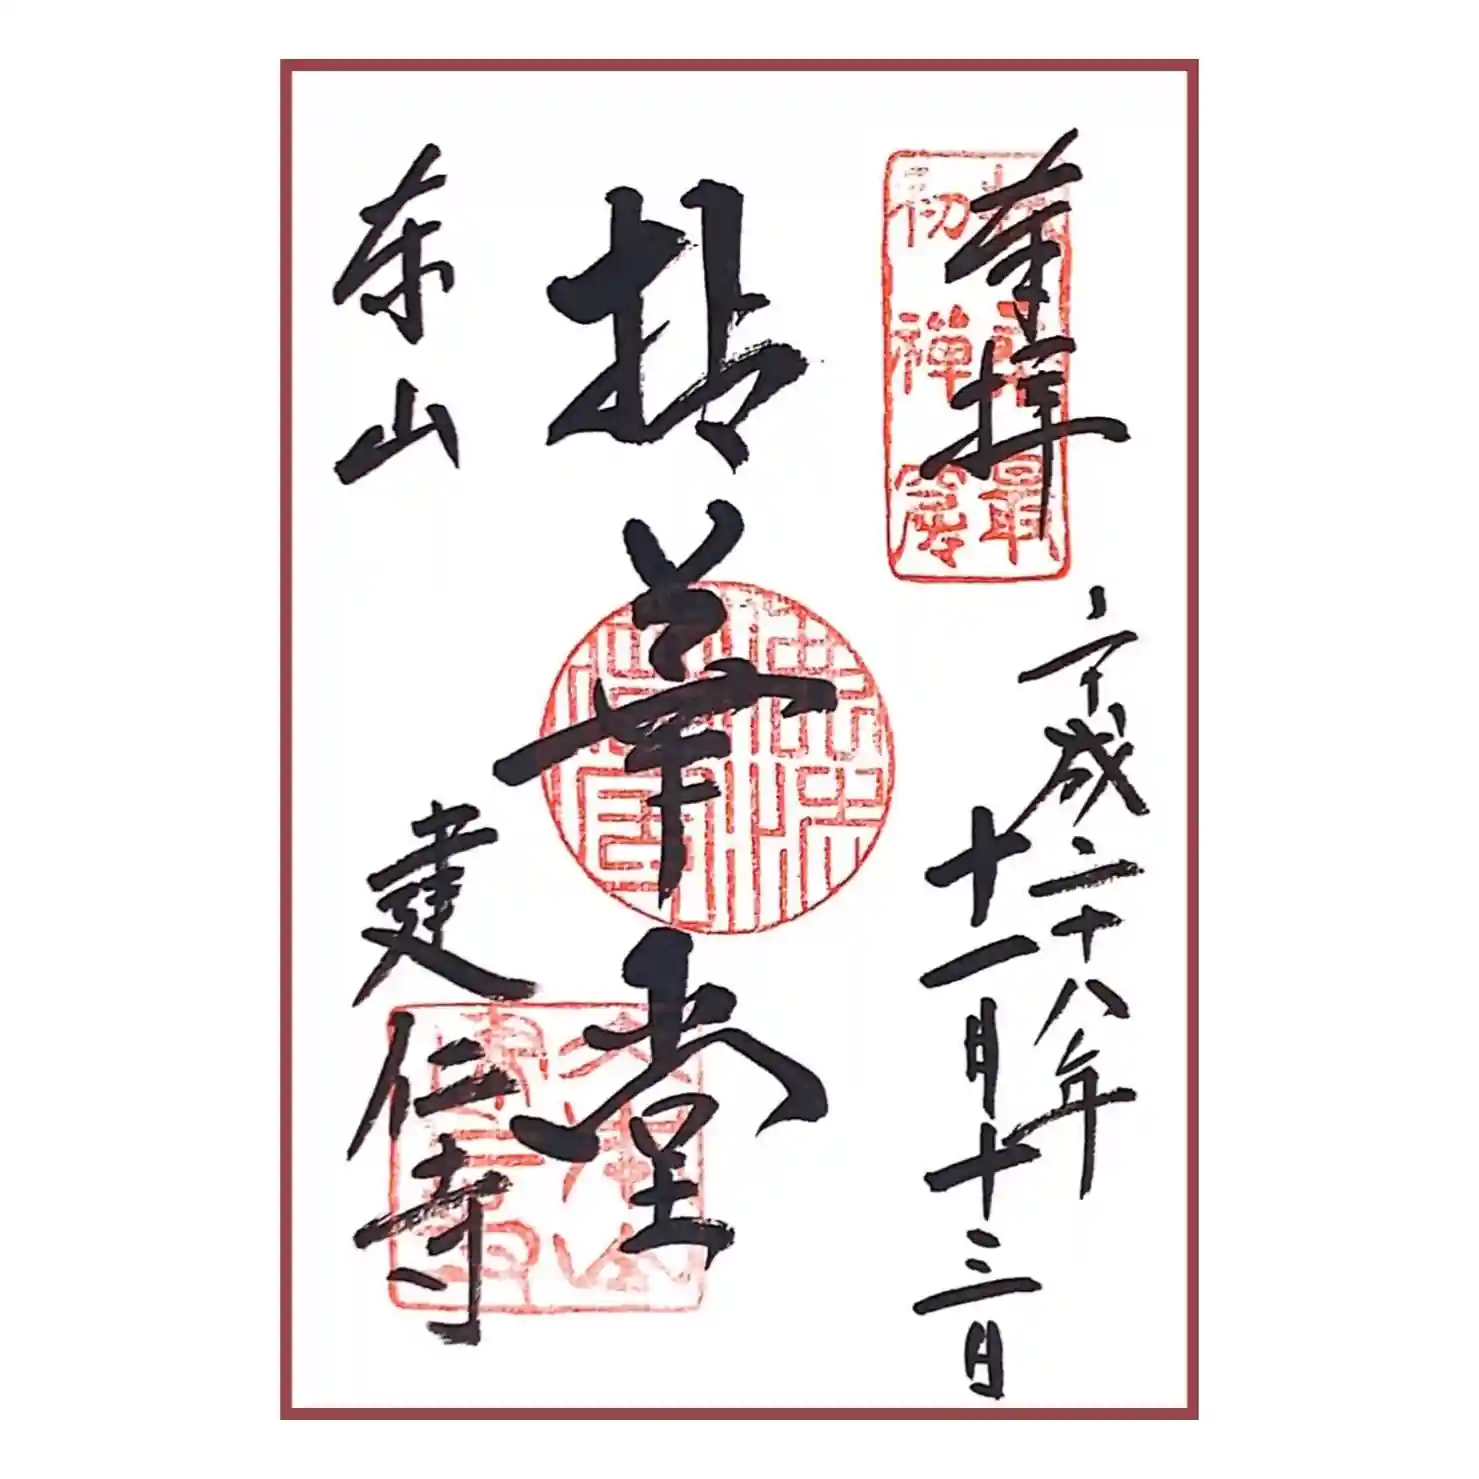 奉拝
扶桑最
初禅窟
平成二十八年
十一月十三日
拈華堂
東山
建仁寺